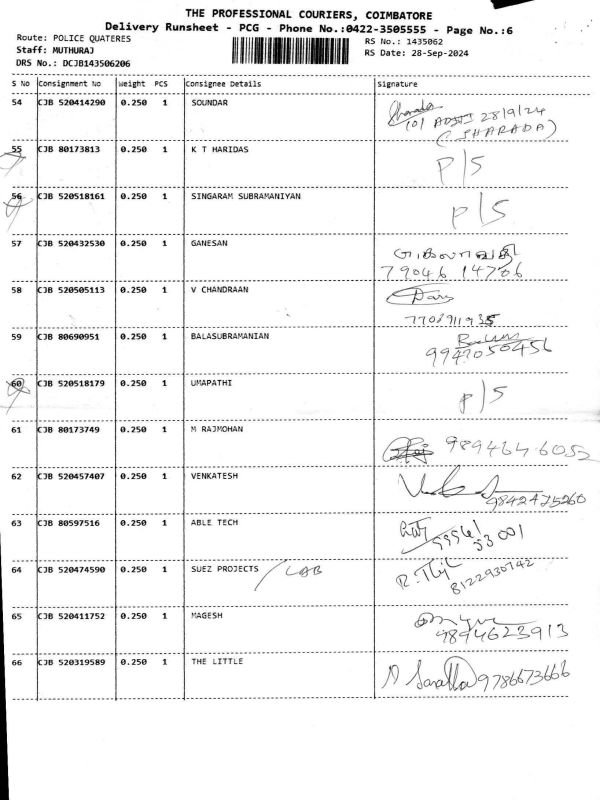 THE PROFESSIONAL COURIERS, COIMBATORE
Delivery Runsheet - PCG - Phone No.:0422-3505555 - Page No.:6
Route: POLICE QUATERES
RS No.: 1435062
Staff: MUTHURAJ
RS Date: 28-Sep-2024
DRS No.: DCJB143506206
S No Consignment No Weight PCS Consignee Details Signature
54 CJB 520414290 0.250 1 SOUNDAR
28/9/24
(SHARADA)
55 CJB 80173813 0.250 1 K T HARIDAS P/S
56 CJB 520518161 0.250 1 SINGARAM SUBRAMANIYAN P/S
57 CJB 520432530 0.250 1 GANESAN
79046 14786
58 CJB 520505113 0.250 1 V CHANDRAAN
59 CJB 80690951 0.250 1 BALASUBRAMANIAN
9947050456
60 CJB 520518179 0.250 1 UMAPATHI P/S
61 CJB 80173749 0.250 1 M RAJMOHAN 9894646052
62 CJB 520457407 0.250 1 VENKATESH
9842475260
63 CJB 80597516 0.250 1 ABLE TECH
64 CJB 520474590 0.250 1 SUEZ PROJECTS / LAB
8122930742
65 CJB 520411752 0.250 1 MAGESH
9894623913
66 CJB 520319589 0.250 1 THE LITTLE 9786673666